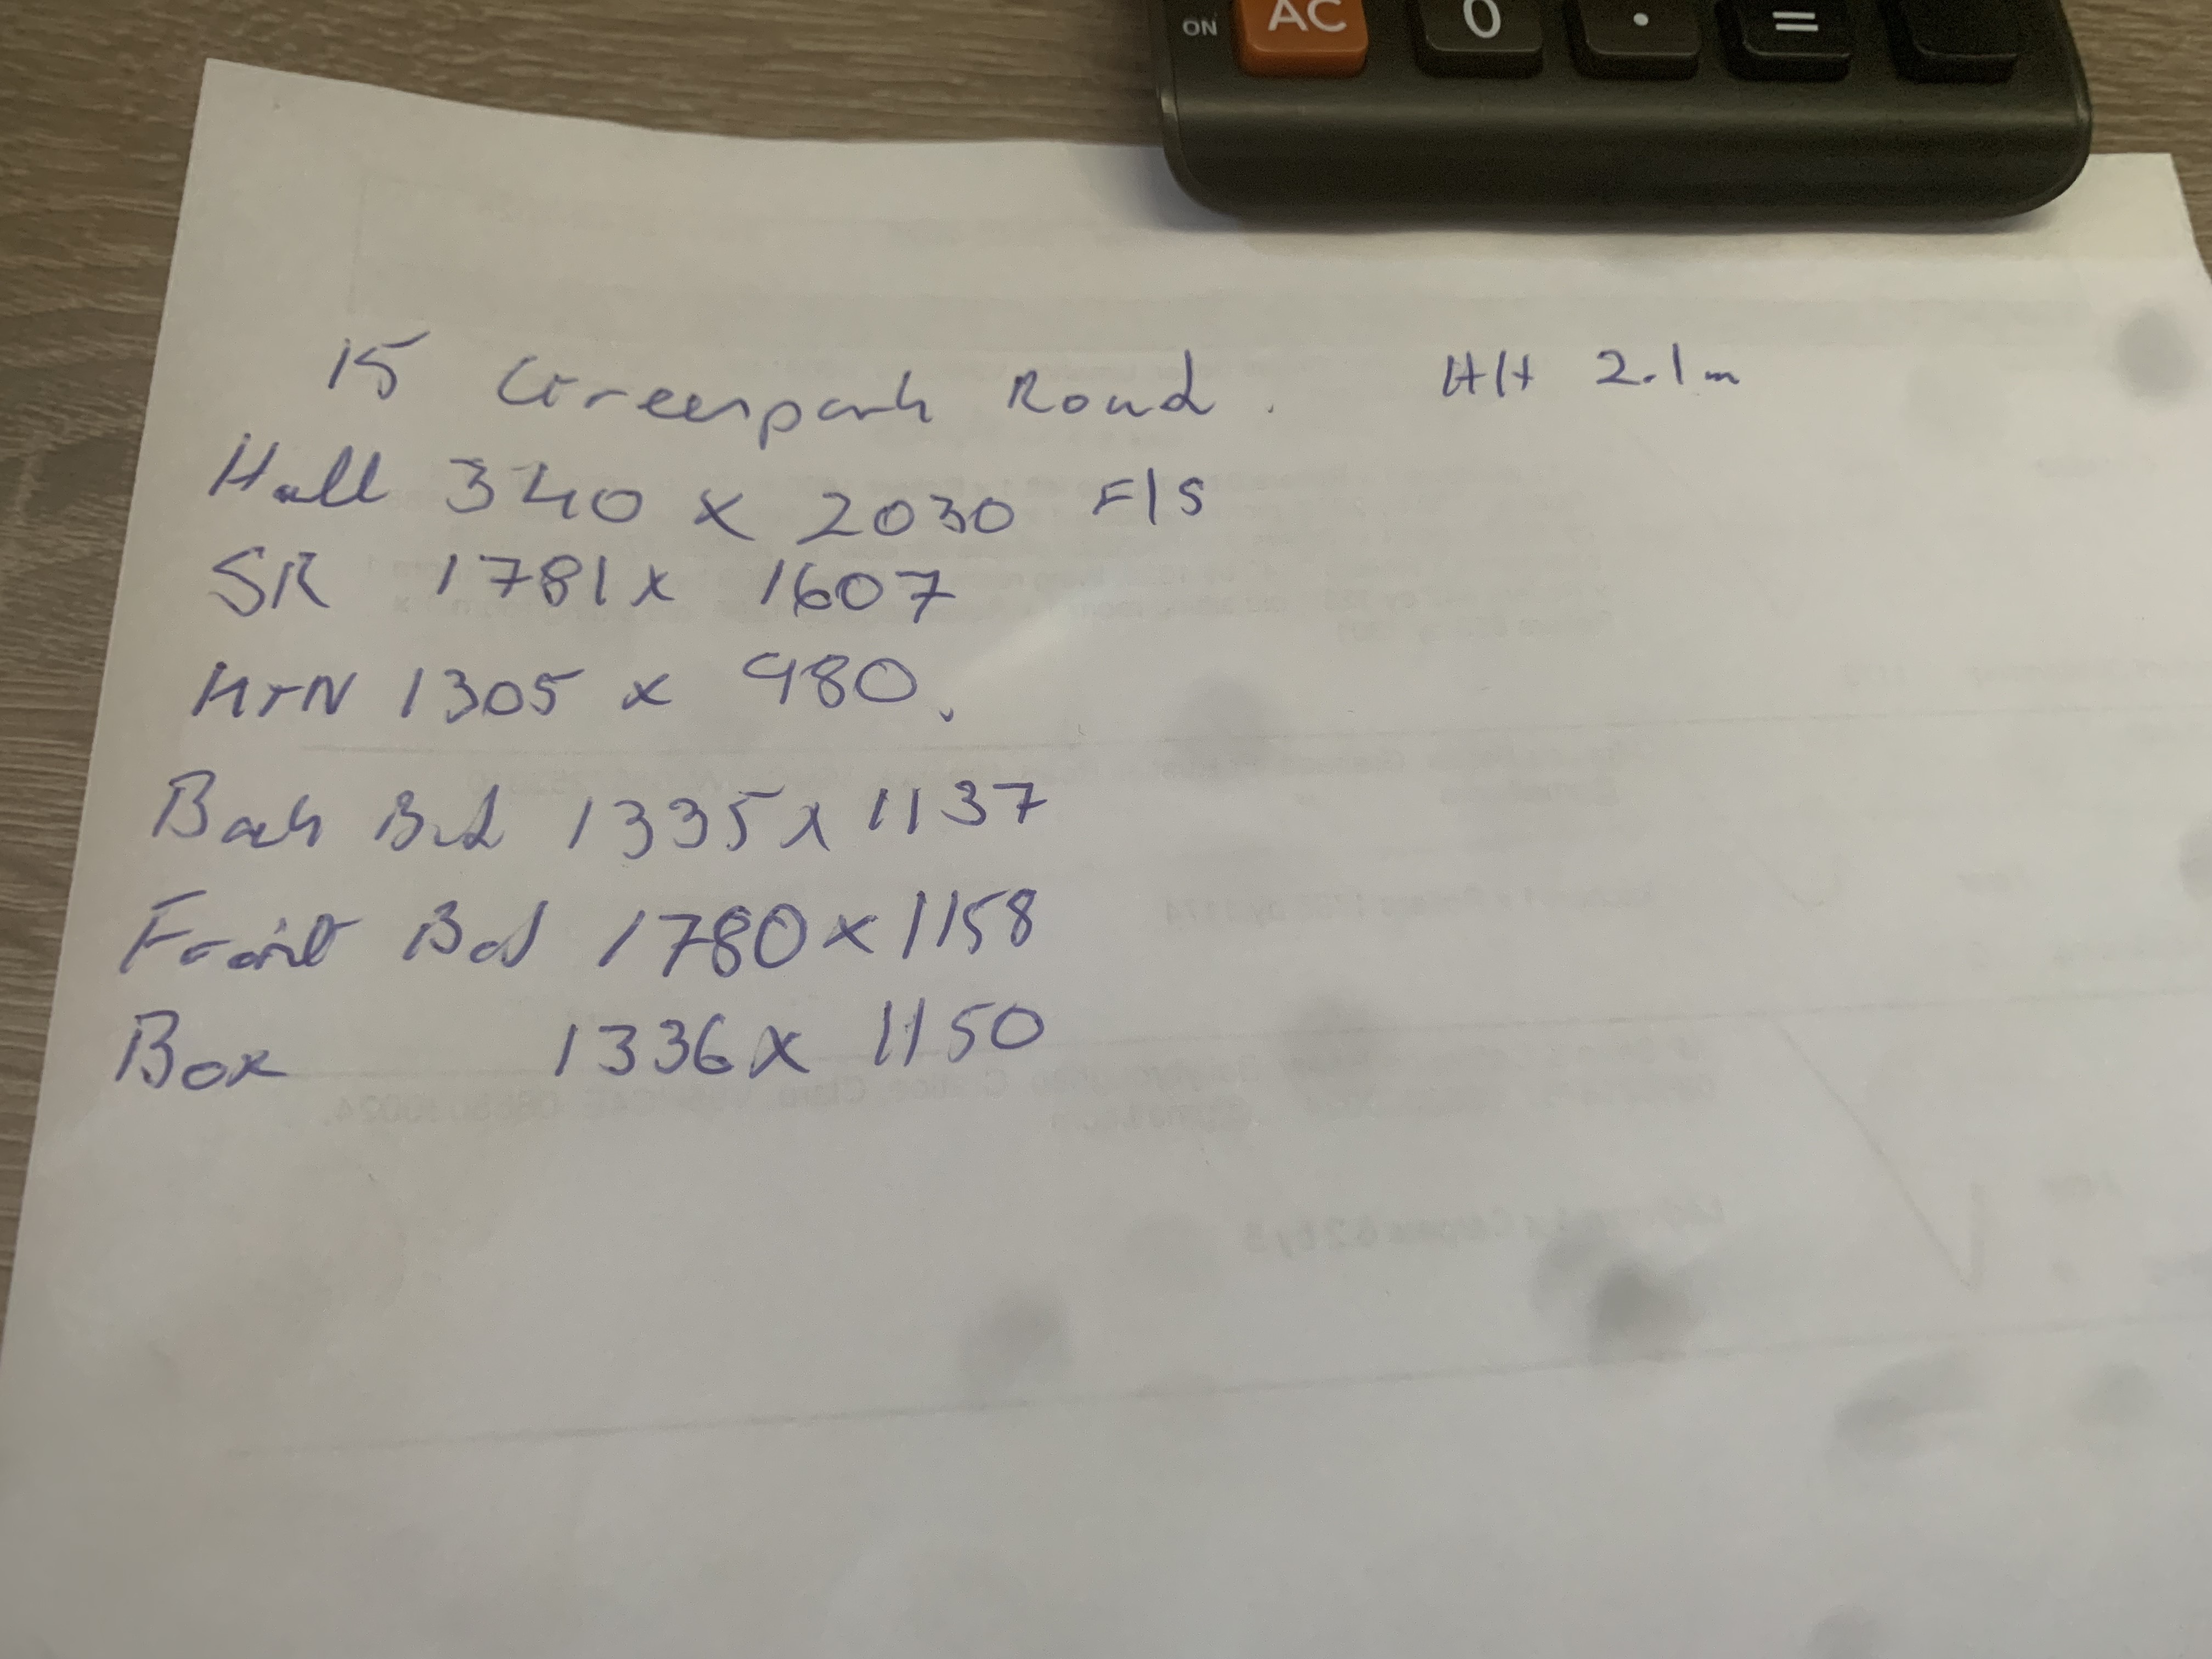 ON AC 0 . =
15 Greenpark Road. H/H 2.1m
Hall 340 x 2030 F/S
SR 1781 x 1607
KTN 1305 x 980.
Back Bed 1335 x 1137
Front Bed 1780 x 1158
Box 1336 x 1150